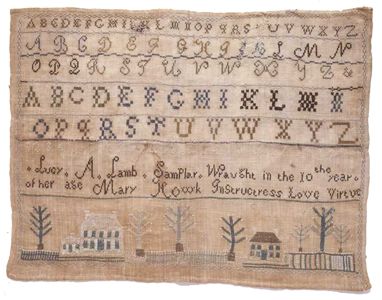 ABCDEFGHIKLMNOPQRSTUVWXYZ
ABCDEFGHIKLMN
OPQRSTUVWXYZ&
ABCDEFGHIKLMN
OPQRSTUVWXYZ
Lucy. A. Lamb. Samplar. Wraught in the 10th year.
of her age Mary Instructress Love Virtue